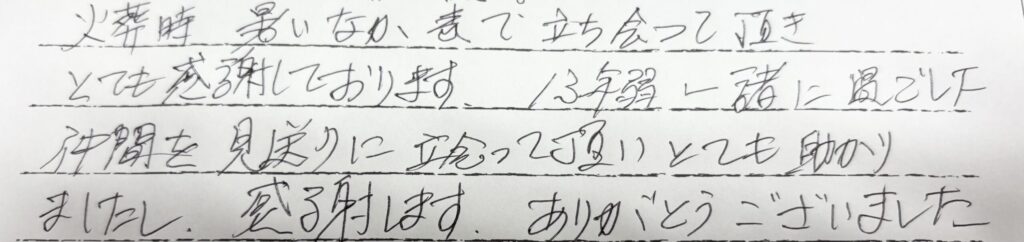 火葬時 暑いなか、表で 立ち会って 頂き
とても感謝しております。 13年弱 一諸に過ごした
仲間を 見送りに 立会って頂い とても 助かり
ましたし、 感謝します。 ありがとうございました